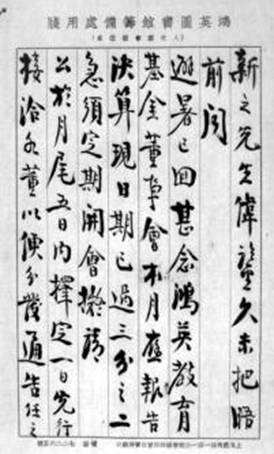 鴻英圖書館籌備處用牋
新之先生偉鑒久未把晤
前聞
避暑已回甚念鴻英教育
基金董事會本月應報告
決算現日期已過三分之二
急須定期開會擬請
公於月尾五日內擇定一日先行
接洽各董以便分發通告任之